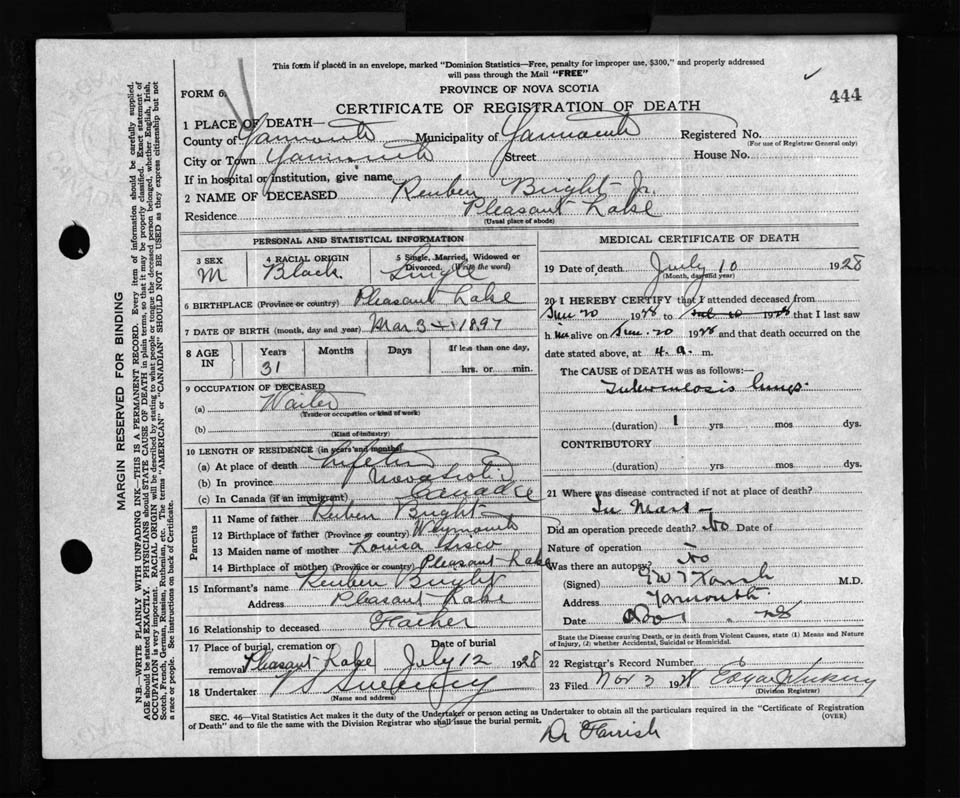 This form if placed in an envelope, marked "Dominion Statistics—Free, penalty for improper use, $300," and properly addressed
will pass through the Mail "FREE"
FORM 6.
PROVINCE OF NOVA SCOTIA
444
CERTIFICATE OF REGISTRATION OF DEATH
1 PLACE OF DEATH—
County of Yarmouth Municipality of Yarmouth Registered No.
(For use of Registrar General only)
City or Town Yarmouth Street House No.
If in hospital or institution, give name
2 NAME OF DECEASED Reuben Bright Jr.
Residence Pleasant Lake
(Usual place of abode)
PERSONAL AND STATISTICAL INFORMATION
3 SEX 4 RACIAL ORIGIN 5 Single, Married, Widowed or
Divorced. (Write the word)
M Black Single
6 BIRTHPLACE (Province or country) Pleasant Lake
7 DATE OF BIRTH (month, day and year) Mar 3 1897
8 AGE IN Years Months Days If less than one day,
31 hrs. or min.
9 OCCUPATION OF DECEASED
(a) Waiter
(Trade or occupation or kind of work)
(b)
(Kind of industry)
10 LENGTH OF RESIDENCE (in years and months)
(a) At place of death Lifetime
(b) In province Nova Scotia
(c) In Canada (if an immigrant) Canada
Parents
11 Name of father Reuben Bright
12 Birthplace of father (Province or country) Weymouth
13 Maiden name of mother Louisa Sisco
14 Birthplace of mother (Province or country) Pleasant Lake
15 Informant's name Reuben Bright
Address Pleasant Lake
16 Relationship to deceased Father
17 Place of burial, cremation or Date of burial
removal Pleasant Lake July 12 1928
18 Undertaker V S Sweeney
(Name and address)
MEDICAL CERTIFICATE OF DEATH
19 Date of death July 10 1928
(Month, day and year)
20 I HEREBY CERTIFY that I attended deceased from
June 20 1928 to 1928 that I last saw
h im alive on June 20 1928 and that death occurred on the
date stated above, at 4 a. m.
The CAUSE of DEATH was as follows:—
Tuberculosis lungs
(duration) 1 yrs. mos dys.
CONTRIBUTORY
(duration) yrs. mos. dys.
21 Where was disease contracted if not at place of death?
In Mass
Did an operation precede death? No Date of
Nature of operation
Was there an autopsy? No
(Signed) Farish M.D.
Address Yarmouth
Date
State the Disease causing Death, or in death from Violent Causes, state (1) Means and Nature
of Injury, (2) whether Accidental, Suicidal or Homicidal.
22 Registrar's Record Number 6
23 Filed Nov 3 1928 Edgar
(Division Registrar)
SEC. 46—Vital Statistics Act makes it the duty of the Undertaker or person acting as Undertaker to obtain all the particulars required in the "Certificate of Registration
of Death" and to file the same with the Division Registrar who shall issue the burial permit. (OVER)
Dr Farish
MARGIN RESERVED FOR BINDING
N.B.—WRITE PLAINLY WITH UNFADING INK—THIS IS A PERMANENT RECORD. Every item of information should be carefully supplied.
AGE should be stated EXACTLY. PHYSICIANS should STATE CAUSE OF DEATH in plain terms, so that it may be properly classified. Exact statement of
OCCUPATION is very important. RACIAL ORIGIN will be described by stating to what people or tongue the deceased person belonged, whether English, Irish,
Scotch, French, German, Russian, Ruthenian, etc. The terms "AMERICAN" or "CANADIAN" SHOULD NOT BE USED as they express citizenship but not
a race or people. See instructions on back of Certificate.